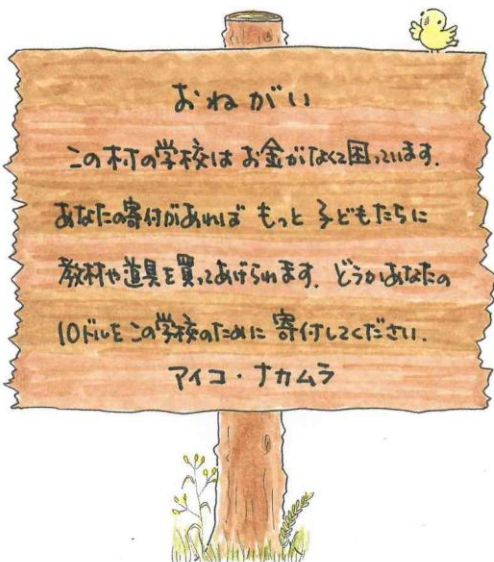 おねがい
この村の学校は お金がなくて困っています.
あなたの寄付があれば もっと 子どもたちに
教材や道具を買ってあげられます. どうかあなたの
10ドルをこの学校のために 寄付してください.
アイコ・ナカムラ